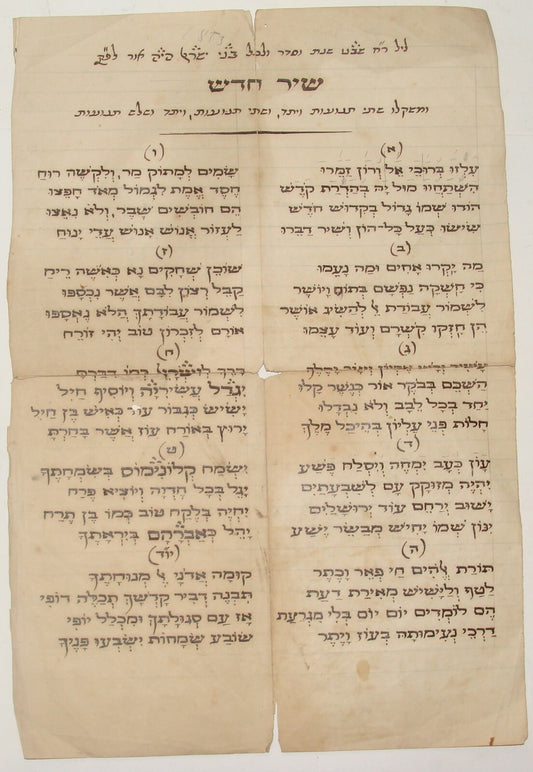 ליל ר״ח שבט שנת וסדר ולכל בני ישראל היה אור לפ״ק
שיר חדש
ומשקלו שתי תנועות ויתד, ושתי תנועות, ויתד ושלש תנועות
(א)
עִלְזוּ בְּרוּכֵי אֵל וְרוֹן זַמֵּרוּ
הִשְׁתַּחֲווּ מוּל יָהּ בְּהַדְרַת קֹדֶשׁ
הוֹדוּ שְׁמוֹ גָדוֹל בְּקִדּוּשׁ חֹדֶשׁ
שִׂישׂוּ כְּעַל כָּל־הוֹן וְשִׁיר דַּבֵּרוּ
(ב)
מַה יָּקְרוּ אַחִים וּמַה נָּעֵמוּ
כִּי חִשְּׁקָה נַפְשָׁם בְּתוֹם וָיוֹשֶׁר
לִשְׁמוֹר עֲבוֹדַת לְהַשִּׂיג אוֹשֶׁר
הִן חִזְּקוּ קִשְׁרָם וְעוֹד עָצְמוּ
(ג)
הִשְׁכֵּם בְּבֹקֶר אוֹר כְּנֶשֶׁר קַלּוּ
יַחַד בְּכָל לֵבָב וְלֹא נִבְדָּלוּ
חָלוֹת פְּנֵי עֶלְיוֹן בְּהֵיכַל מֶלֶךְ
(ד)
עָוֹן כְּעָב יִמְחֶה וְיִסְלַח פֶּשַׁע
יִהְיֶה מְזוּקָּק עָם לְשִׁבְעָתַיִם
יָשׁוּב יְרַחֵם עוֹד יְרוּשָׁלַיִם
יִנּוֹן שְׁמוֹ יָחִישׁ מְבַשֵּׂר יֵשַׁע
(ה)
תּוֹרַת אֱלֹהִים חַי פְּאֵר וָכֶתֶר
לַטַּף וְלַיָּשִׁישׁ מְאִירַת דַּעַת
הֵם לוֹמְדִים יוֹם יוֹם בְּלִי מִגְרַעַת
דַּרְכֵי נְעִימוּתָהּ בְּעוֹז וָיֶתֶר
(ו)
שָׂמִים לְמָתוֹק מַר, וְלִקְשֵׁה רוּחַ
חֶסֶד אֱמֶת לִגְמוֹל מְאֹד חָפֵצוּ
הֵם חוֹבְשִׁים שֶׁבֶר, וְלֹא נִאֵצוּ
לַעְזוֹר אֱנוֹשׁ אָנוּשׁ עֲדֵי יָנוּחַ
(ז)
שׁוֹכֵן שְׁחָקִים נָא כְּאִשֵּׁה רֵיחַ
קַבֵּל רְצוֹן לִבָּם אֲשֶׁר נִכְסָפוּ
לִשְׁמוֹר עֲבוֹדָתְךָ הֲלֹא נֶאֱסָפוּ
אוֹרָם לְזִכְרוֹן טוֹב יְהִי זוֹרֵחַ
(ח)
יִגְדַּל עֲשִׁירִיָּה וְיוֹסִיף חַיִל
יָשִׂישׂ כְּגִבּוֹר עוֹד כְּאִישׁ בֶּן חַיִל
יָרוּץ בְּאוֹרַח עוֹז אֲשֶׁר בָּחַרְתָּ
(ט)
יִשְׂמַח קָלוֹנִימוֹס בְּשִׂמְחָתֶךָ
יָגֵל בְּכָל חֶדְוָה וְיוֹצִיא פֶּרַח
יִחְיֶה בְּלֶקַח טוֹב כְּמוֹ בֶּן תֶּרַח
יָהֵל כְּאַבְרָהָם בְּיִרְאָתֶךָ
(יוד)
קוּמָה אֲדֹנָי מְנוּחָתֶךָ
תִּבְנֶה דְּבִיר קָדְשְׁךָ תְּכַלֶּה דוֹפִי
אָז עַם סְגוּלָּתְךָ וּמִכְלַל יוֹפִי
שׂוֹבַע שְׂמָחוֹת יִשְׂבְּעוּ פָּנֶיךָ